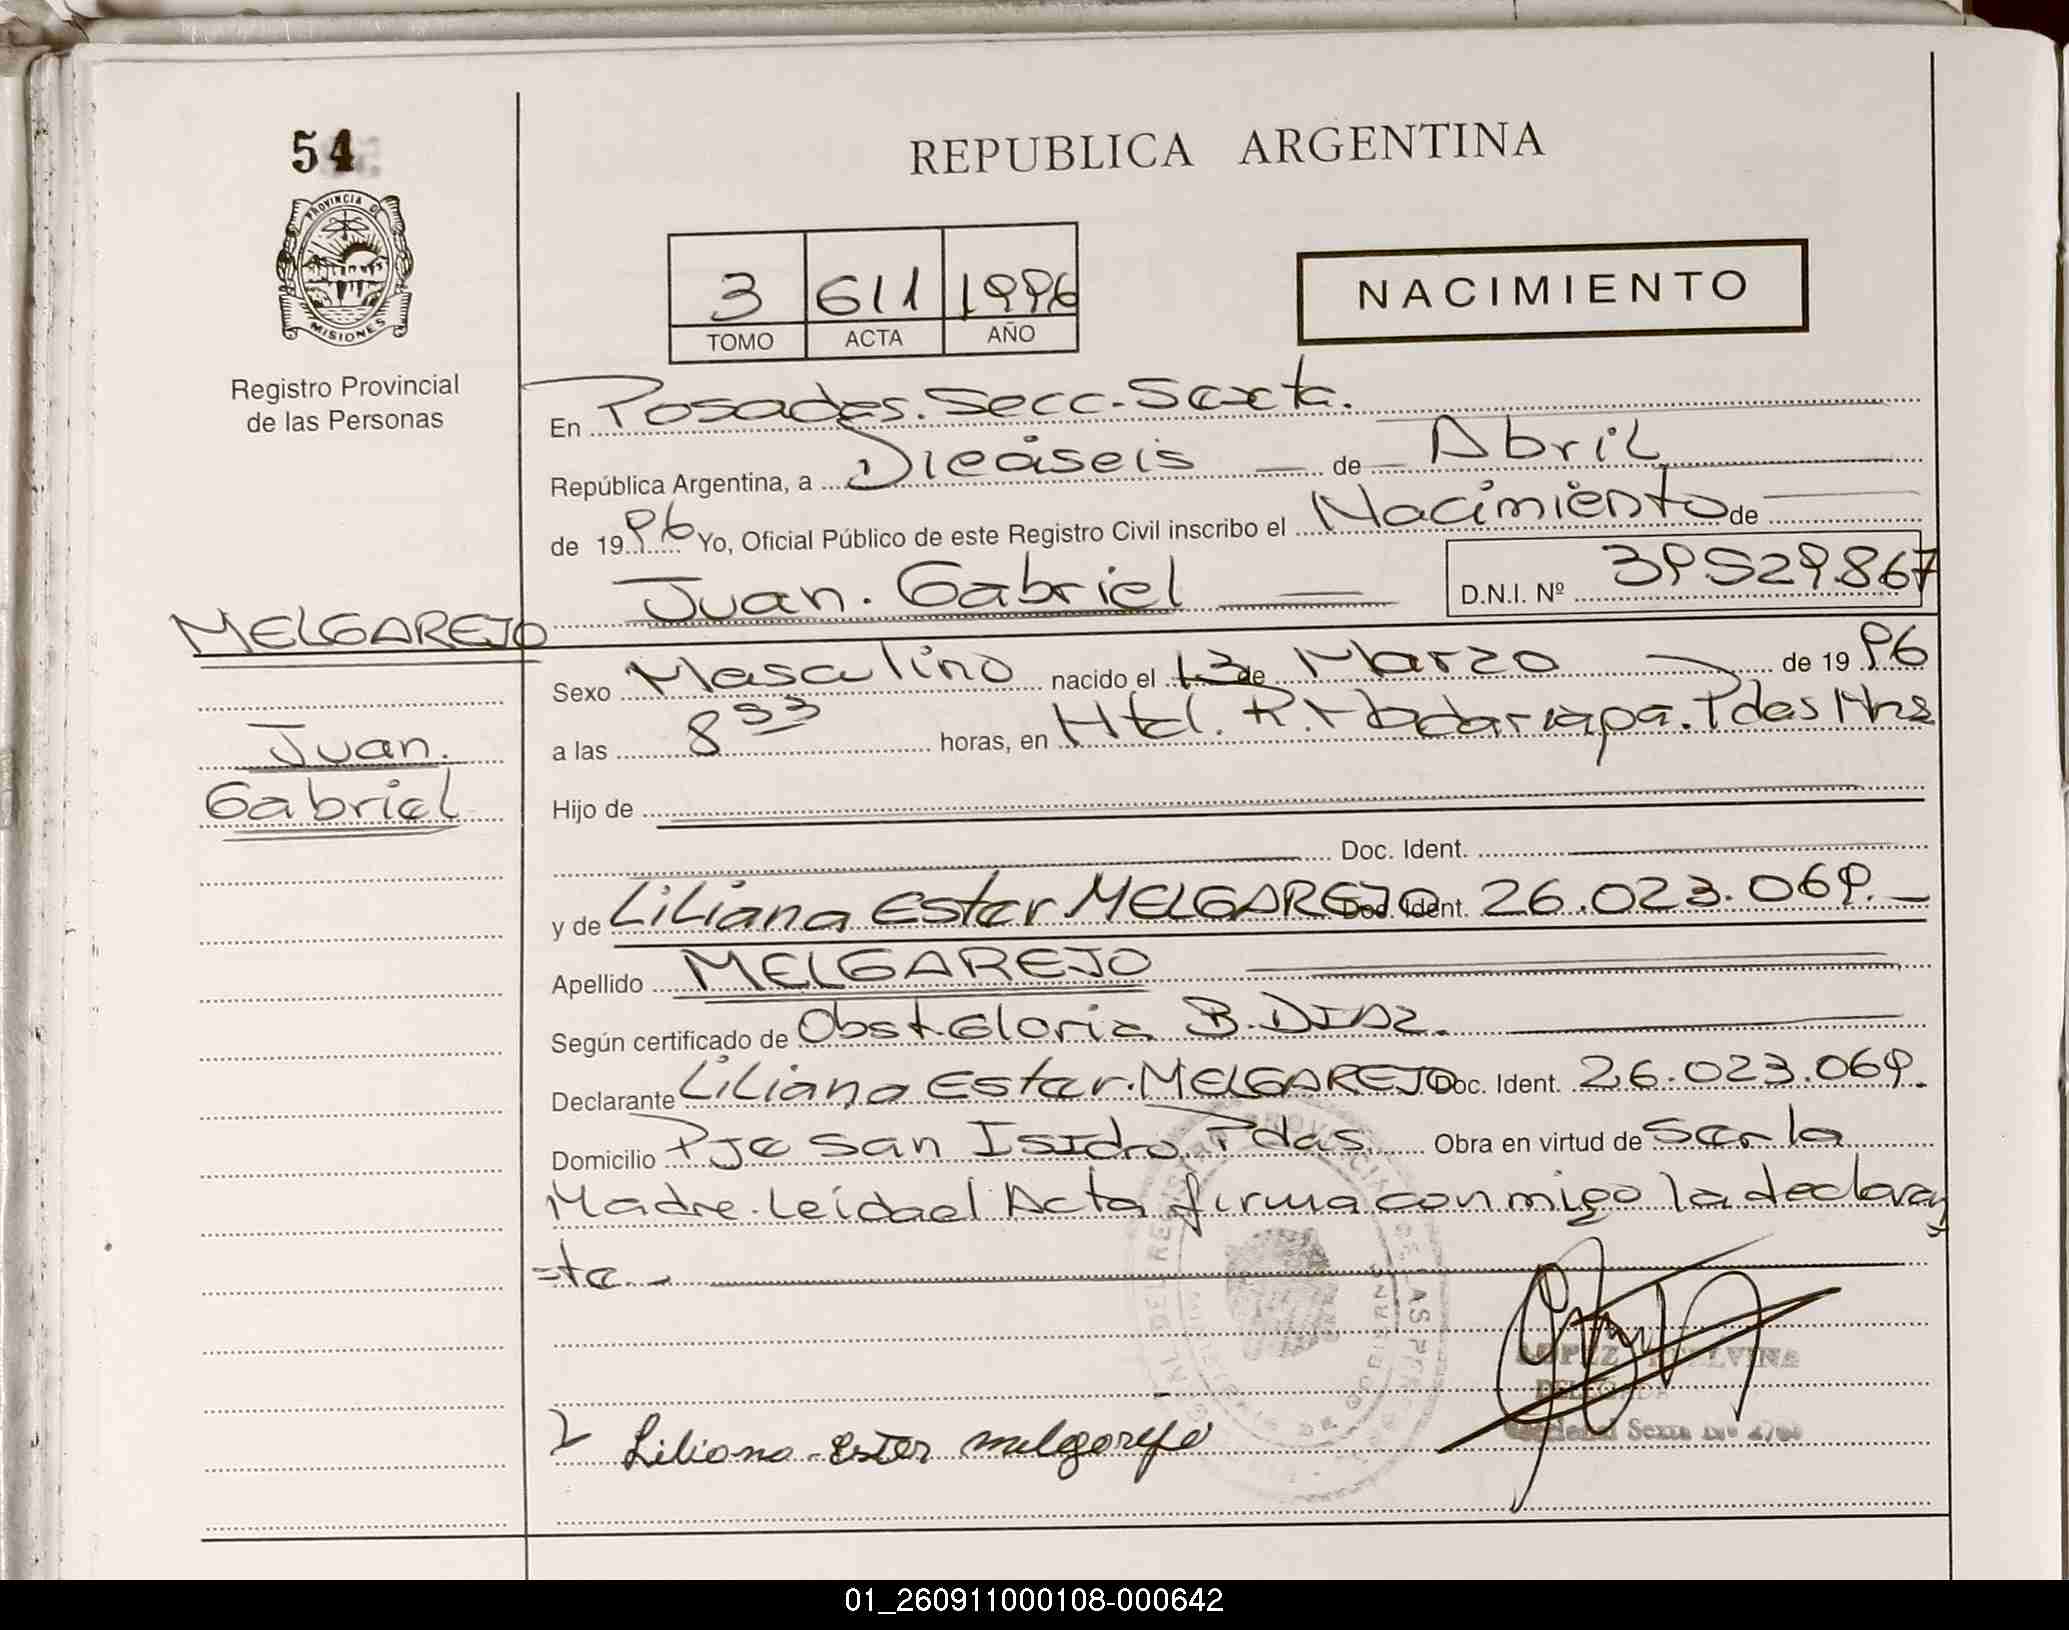 54
PROVINCIA DE
MISIONES
Registro Provincial
de las Personas
REPUBLICA ARGENTINA
3 611 1996
TOMO ACTA AÑO
NACIMIENTO
En Posadas. Secc. Sexta.
República Argentina, a Dieciseis de Abril
de 1996 Yo, Oficial Público de este Registro Civil inscribo el Nacimiento de
Juan. Gabriel D.N.I. Nº 39529.867
MELGAREJO
Juan.
Gabriel
Sexo Masculino nacido el 13 de Marzo de 1996
a las 8 33 horas, en Htal. R. Madariaga. Pdas Mns
Hijo de
Doc. Ident.
y de Liliana Ester MELGAREJO Doc. Ident. 26.023.069.
Apellido MELGAREJO
Según certificado de Obst. Gloria B. DIAZ.
Declarante Liliana Ester. MELGAREJO Doc. Ident. 26.023.069.
Domicilio Pje San Isidro. Pdas. Obra en virtud de Ser la
Madre. Leída el Acta firma conmigo la declaran
=te.
LOPEZ
DELEGADA
Sexta
Liliana Ester melgarejo
01_260911000108-000642